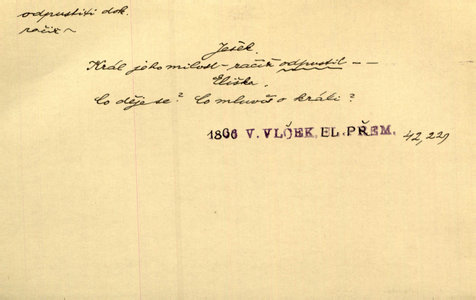 odpustiti dok.
račiti
Ješek.
Král jeho milost - račil odpustil - -
Eliška.
Co děje se? Co mluvíš o králi?
1866 V. VLČEK, EL. PŘEM. 42, 229